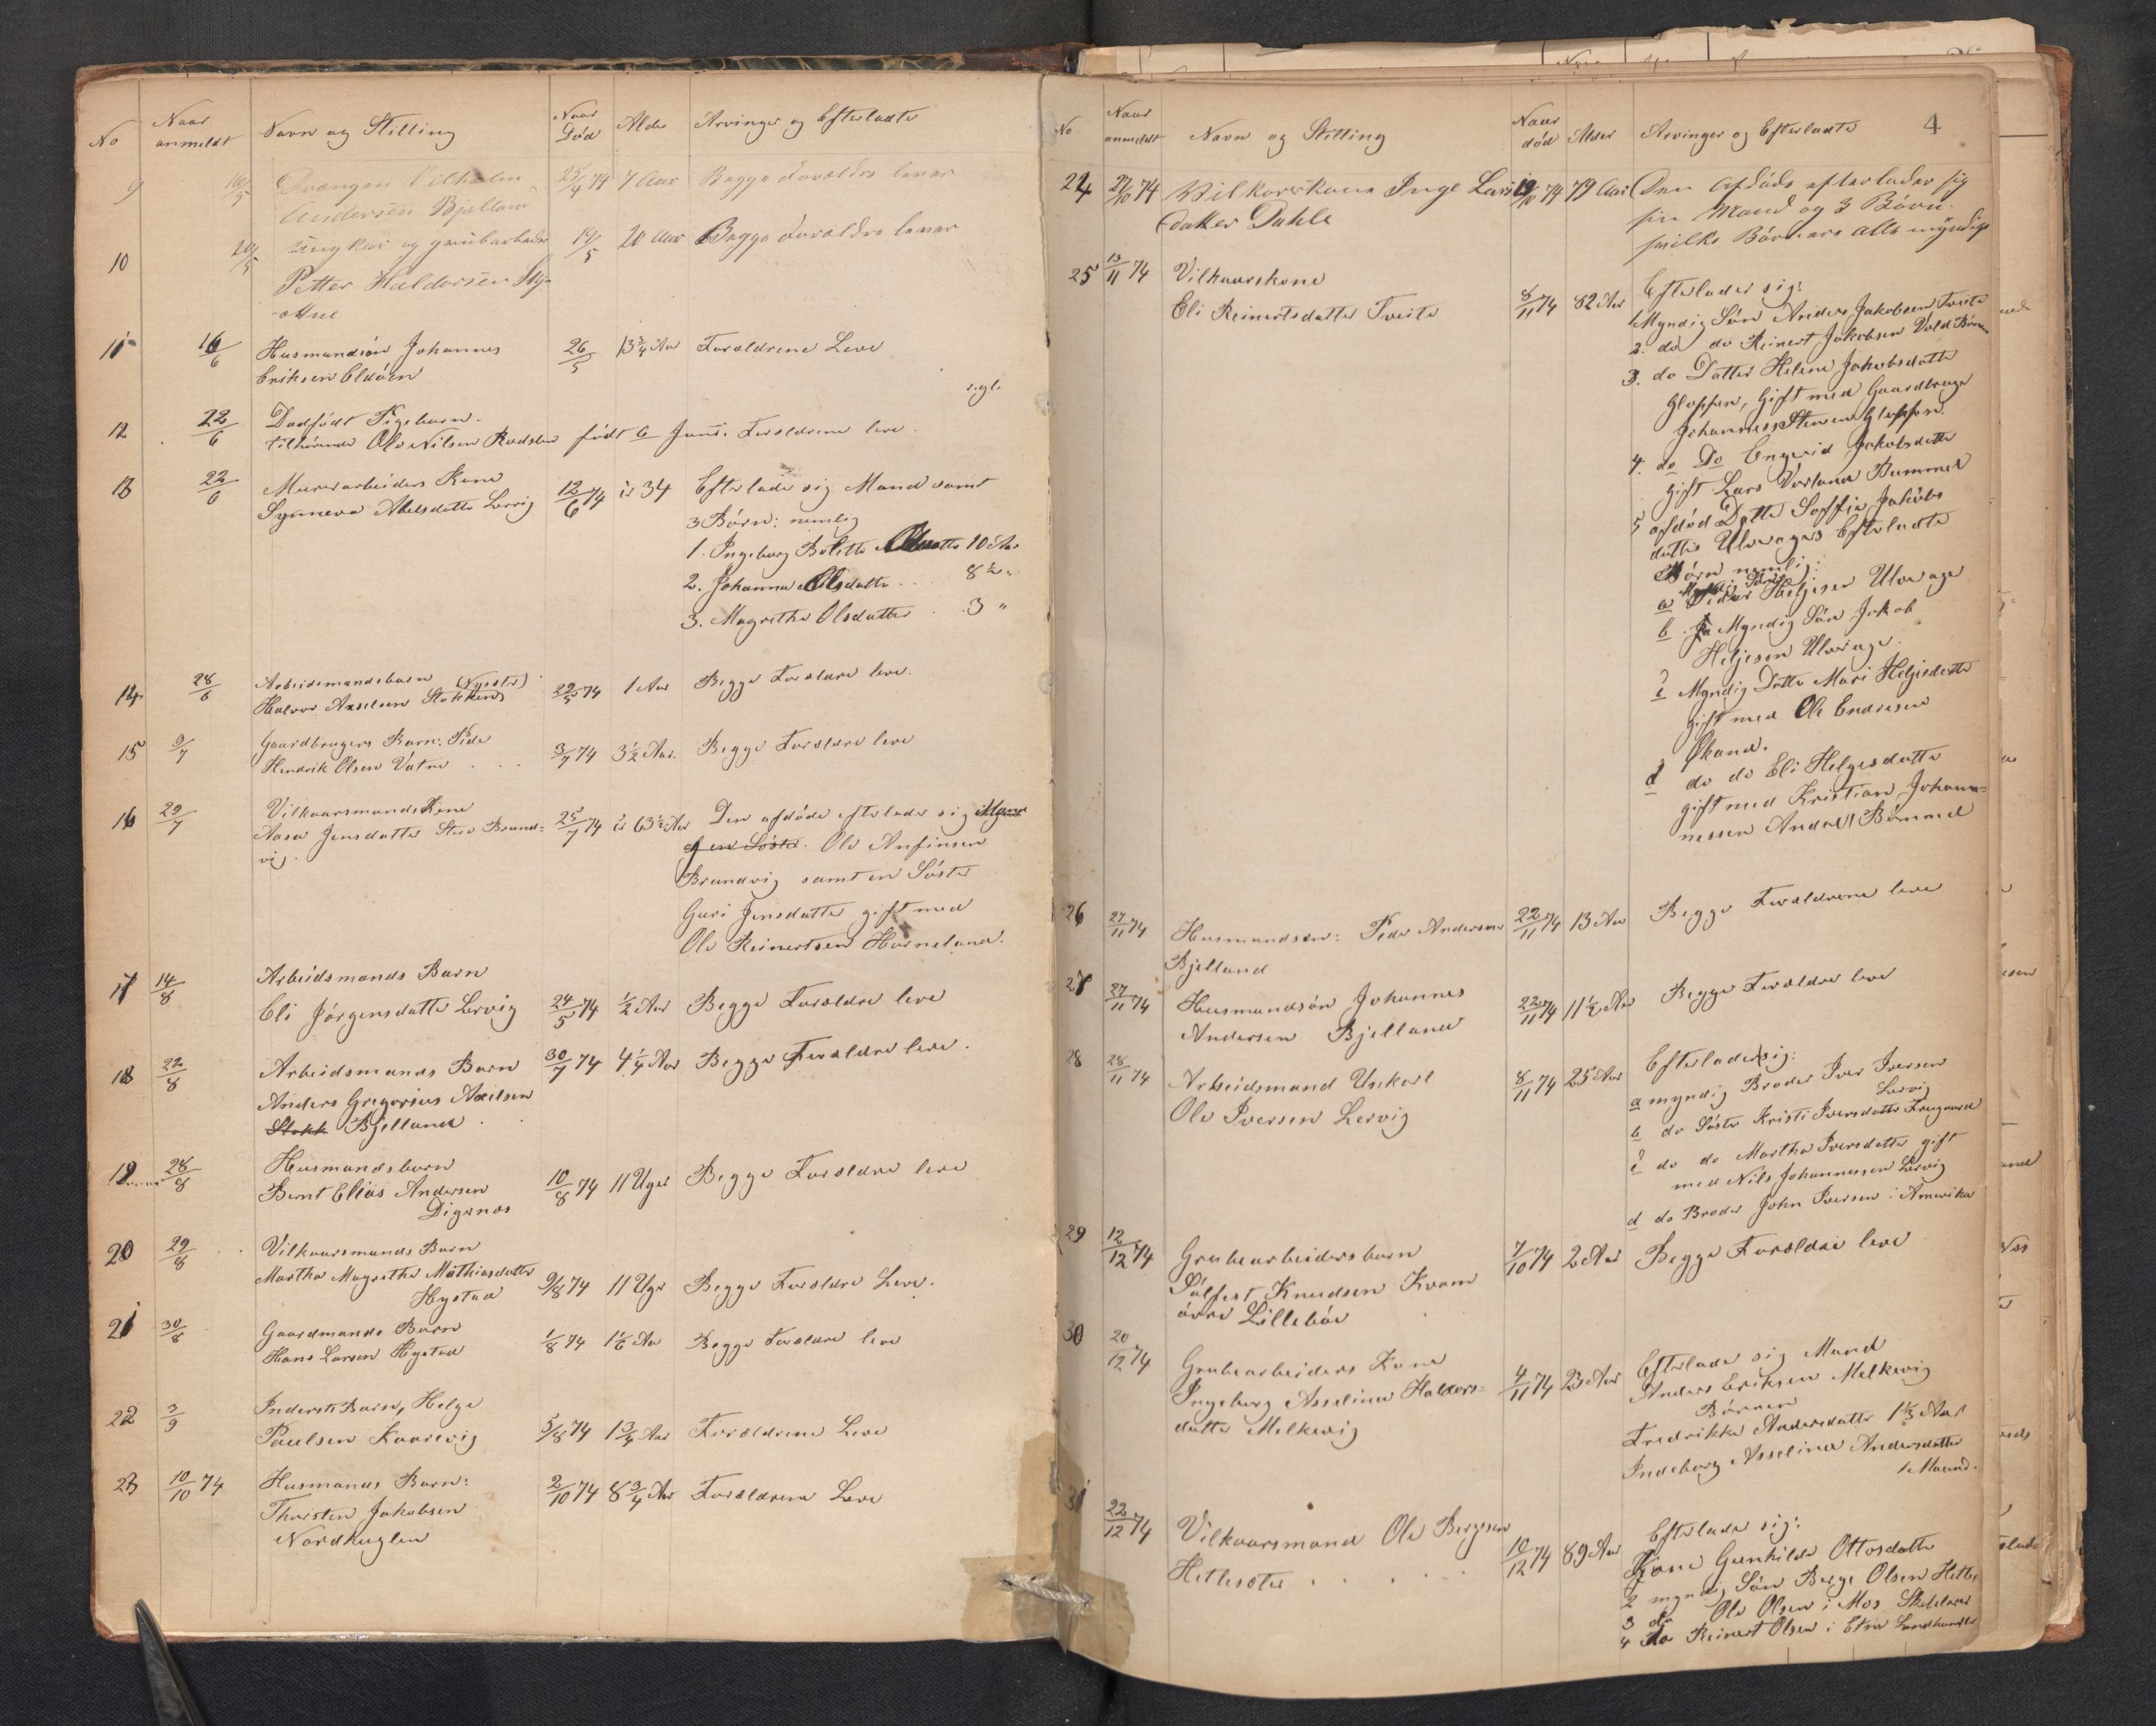 No Naar anmeldt Navn og Stilling Naar Död Alder Arvinger og Efterladte
9 16/5 Drængen Vilhelm 25/4 74 7 Aar Begge Forældre lever
Andersen Bjelland
10 20/5 Ungkar og grubarbeder 14/5 20 Aar Begge Forældre lever
Petter Haldorsen Sky-
11 16/6 Husmandsön Johannes 26/5 13 3/4 Aar Forældrene Leve
Eriksen Eldöen
12 22/6 Dødfödt Pigebarn.
tilhörende Ole Nilsen Rødsten født 6 Juni. Forældrene leve.
13 22/6 Murerarbeiders Kone 12/6 74 34 Efterlader sig Mand samt
Synneva Abelsdatter Lervig 3 Börn: nemlig
1. Ingeborg Bolette Olsdatter 10 Aar
2. Johanna Olsdatter 8 1/2 "
3. Magrethe Olsdatter 3 "
14 28/6 Arbeidsmandsbarn 29/5 74 1 Aar Begge Forældre leve.
Halvor Axelsen Stokken
15 9/7 Gaardbrugers Barn: Peder 3/7 74 3 1/2 Aar. Begge Forældre leve
Hendrik Olsen Vatne
16 29/7 Vilkaarsmands Kone 25/7 74 63 1/2 Aar Den afdöde efterlader sig Mand
Aasa Jensdatter Store Brand-
vig. og en Söster. Ole Anfinsen
Brandvig samt en Söster
Guri Jensdatter gift med
Ole Reinertsen Horneland.
17 14/8 Arbeidsmands Barn
Eli Jörgensdatter Lervig 24/5 74 1/2 Aar Begge Forældre leve
18 22/8 Arbeidsmands Barn 30/7 74 4 1/4 Aar Begge Forældre leve.
Anders Gregorius Axelsen
Stokk Bjelland
19 28/8 Husmandsbarn
Bernt Elias Andersen 10/8 74 11 Uger Begge Forældre leve
Digernæs
20 29/8 Vilkaarsmands Barn
Martha Magrethe Mathiasdatter 9/8 74 11 Uger Begge Forældre Leve.
Hystad
21 30/8 Gaardmands Barn
Hans Larsen Hystad 1/8 74 1 1/6 Aar Begge Forældre leve
22 3/9 Inderst Barn, Helge
Paulsen Kaarevig 5/8 74 1 3/4 Aar Forældrene Leve
23 10/10 74 Husmands Barn: 2/10 74 8 3/4 Aar Forældrene Leve
Thorsten Jakobsen
Nordhuglen
No Naar anmeldt Navn og Stilling Naar död Alder Arvinger og Efterladte 4
24 27/10 74 Vilkorskone Inge Lars 19/10 74 79 Aar Den Afdöde efterlader sig
datter Dahle sin Mand og 3 Börn.
hvilke Börn ere Alle myndige
25 13/11 74 Vilkaarskone
Eli Reinertsdatter Tveite 8/11 74 82 Aar Efterlader sig:
1 Myndig Sön Anders Jakobsen Tveite
2. do do Reinert Jakobsen Vold Bömm
3. do Datter Helene Jakobsdatter
Gloppen, Gift med Gaardbruger
Johannes Steensen Gloppen.
4. do Do Engerid Jakobsdatter
gift Lars Vorland Bummel
5 afdöd Datter Soffie Jakobs
datter Ulveragers Efterladte
Börn nemlig:
a Peder Heljesen Ulverage
b. Myndig Sön Jakob
Heljesen Ulverage.
c Myndig Datter Mari Heljedatter
gift med Ole Endresen
Økand.
d do do Eli Helgesdatter
gift med Kristian Johan-
nessen Andal Bömmel
26 27/11 74 Husmandsön: Peder Andersen 22/11 74 13 Aar Begge Forældrene leve
Bjelland
27 27/11 74 Husmandsön Johannes 22/11 74 11 1/2 Aar Begge Forældre leve
Andersen Bjelland
28 28/11 74 Arbeidsmand Unkarl 8/11 74 25 Aar Efterlader sig:
Ole Iversen Lervig a myndig Broder Iver Iversen
Lervig
b do Söster Kristi Iversdatter
c do do Martha Iversdatter gift
med Nils Johannessen Lervig
d do Broder John Iversen i Amerika
29 12/12 74 Grubearbeidersbarn 7/10 74 2 Aar Begge Forældre leve
Sölfest Knudsen Kvam
övre Lilleböe
30 20/12 74 Grubearbeiders Kone 4/11 74 23 Aar Efterlader sig Mand
Ingeborg Asseline Haldors- Anders Eriksen Melkevig
datter Melkevig Börnene
Fredrikke Andersdatter 1 1/3 Aar
Indeborg Asseline Andersdatter
1 Maaned.
31 22/12 74 Vilkaarsmand Ole Bergesen 10/12 74 89 Aar Efterlader sig:
Hetlesæter Kone Gunhilde Ottosdatter
2 myndig Sön Berge Olsen Hetle
3 do Ole Olsen i Mos
4 do Reinert Olsen i Etne Landhandler